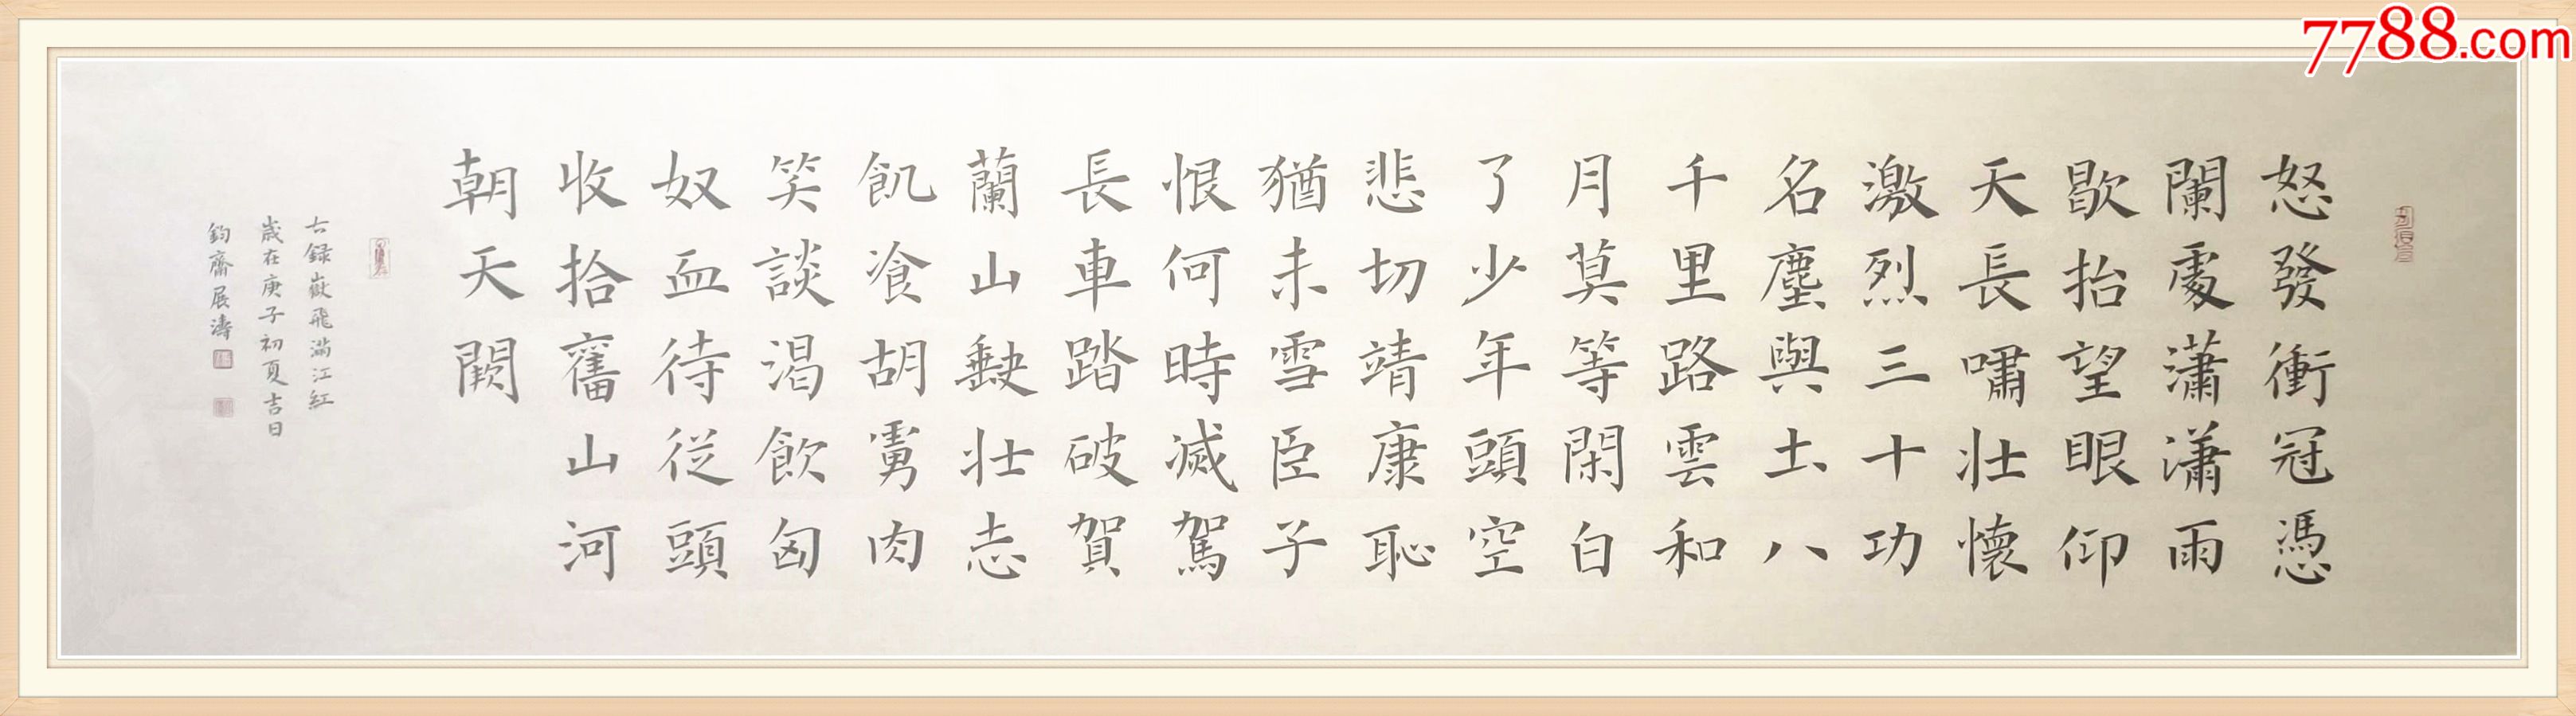 7788.com
怒發衝冠憑
闌處瀟瀟雨
歇抬望眼仰
天長嘯壯懷
激烈三十功
名塵與土八
千里路雲和
月莫等閑白
了少年頭空
悲切靖康恥
猶未雪臣子
恨何時滅駕
長車踏破賀
蘭山缺壯志
飢飡胡虜肉
笑談渴飲匈
奴血待從頭
收拾舊山河
朝天闕
古録嶽飛滿江紅
歲在庚子初夏吉日
鈞齋展濤